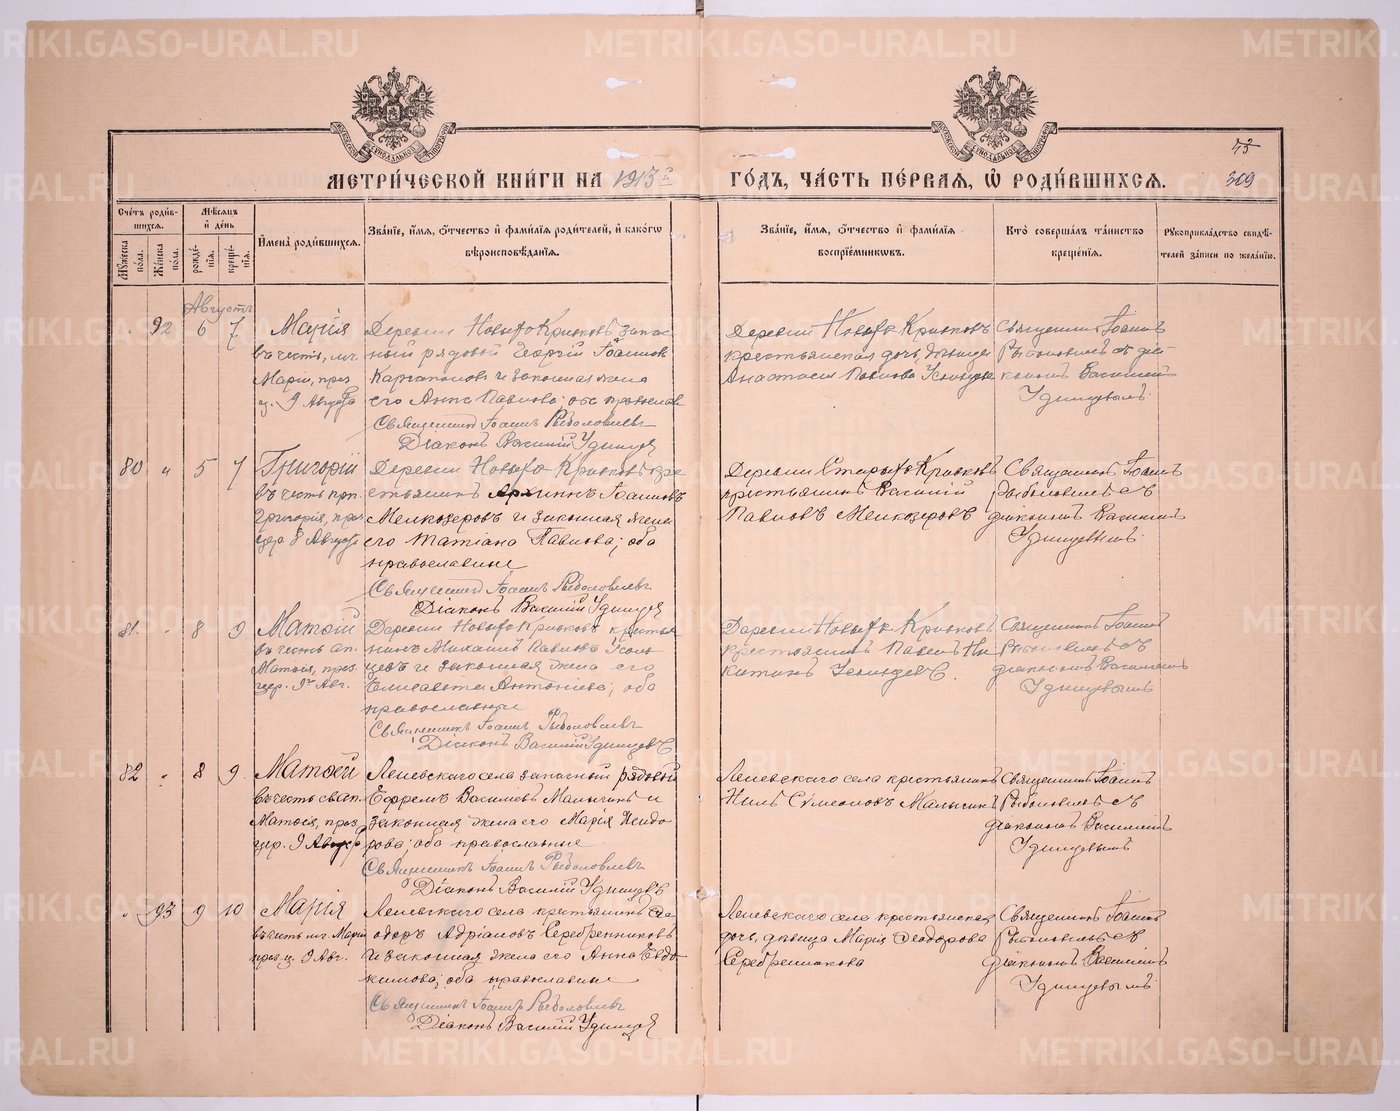 METRIKI.GASO-URAL.RU
МЕТРИ́ЧЕСКОЙ КНИ́ГИ НА 1913й
ГО́ДЪ, ЧА́СТЬ ПЕ́РВАЯ, Ѡ РОДИ́ВШИХСѦ.
43
369
Сче́тъ роди́в-
шихся.
Мѣ́сяцъ
и҆ де́нь
Мꙋжеска
пола.
Же́нска
пола.
рожде́-
нія.
креще́-
нія.
И҆мена̀ роди́вшихся.
Зва́ніе, и҆́мя, ѻ҆́тчество и҆ фами́лія роди́телей, и҆ како́гѡ
вѣроисповѣ́данія.
Зва́ніе, и҆́мя, ѻ҆́тчество и҆ фами́лія
воспріе́мникѡвъ.
Кто̀ соверша́лъ та́инство
креще́нія.
Рꙋкоприкла́дство свидѣ́-
телей за́писи по жела́нію.
Августъ
92 6 7
Марія
въ честь мч.
Маріи, праз
ц. 9 Августа
Деревни Новыхъ Кривковъ запас-
ный рядовой Георгій Іоанновъ
Каргаполовъ и законная жена
его Анна Павлова; оба православ
Священникъ Іоаннъ Рыболовлевъ
Діаконъ Василій Удинцев
Деревни Новыхъ Кривковъ
крестьянская дочь, дѣвица
Анастасія Павлова Усольцева
Священникъ Іоаннъ
Рыболовлевъ съ діа-
кономъ Василіемъ
Удинцевымъ.
80 „ 5 7
Григорій
въ честь преп.
Григорія, праз
цер 8 Августа
Деревни Новыхъ Кривковъ кре
стьянинъ Архиппъ Іоанновъ
Мелкозеровъ и законная жена
его Татіана Павлова; оба
православные
Священникъ Іоаннъ Рыболовлевъ
Діаконъ Василій Удинцев
Деревни Старыхъ Кривковъ
крестьянинъ Василій
Павловъ Мелкозеровъ
Священникъ Іоаннъ
Рыболовлевъ съ
діакономъ Василіемъ
Удинцевымъ.
81. „ 8 9
Матѳій
въ честь ап.
Матѳія, праз.
цер. 9го Авг.
Деревни Новыхъ Кривковъ крестья
нинъ Михаилъ Павловъ Усоль
цевъ и законная жена его
Елисавета Антоніева; оба
православные
Священникъ Іоаннъ Рыболовлевъ
Діаконъ Василій Удинцевъ
Деревни Новыхъ Кривковъ
крестьянинъ Павелъ Ни
китинъ Усольцевъ.
Священникъ Іоаннъ
Рыболовлевъ съ
діакономъ Василіемъ
Удинцевымъ
82 „ 8 9.
Матѳей
въ честь св ап.
Матѳея, праз.
цер. 9 Август
Леневскаго села запасный рядовой
Ефремъ Василіевъ Малыгинъ и
законная жена его Марія Исидо
рова; оба православные
Священникъ Іоаннъ Рыболовлевъ
Діаконъ Василій Удинцевъ
Леневскаго села крестьянинъ
Нилъ Сумеоновъ Малыгинъ
Священникъ Іоаннъ
Рыболовлевъ съ
діакономъ Василіемъ
Удинцевымъ
„ 93 9 10
Марія
въ честь мч. Маріи
праз. ц. 9 Авг.
Леневскаго села крестьянинъ Ѳе
одоръ Адріановъ Серебренниковъ
и законная жена его Анна Евдо
кимова; оба православные
Священникъ Іоаннъ Рыболовлевъ
Діаконъ Василій Удинцев
Леневскаго села крестьянская
дочь, дѣвица Марія Ѳеодорова
Серебренникова
Священникъ Іоаннъ
Рыболовлевъ съ
діакономъ Василіемъ
Удинцевымъ